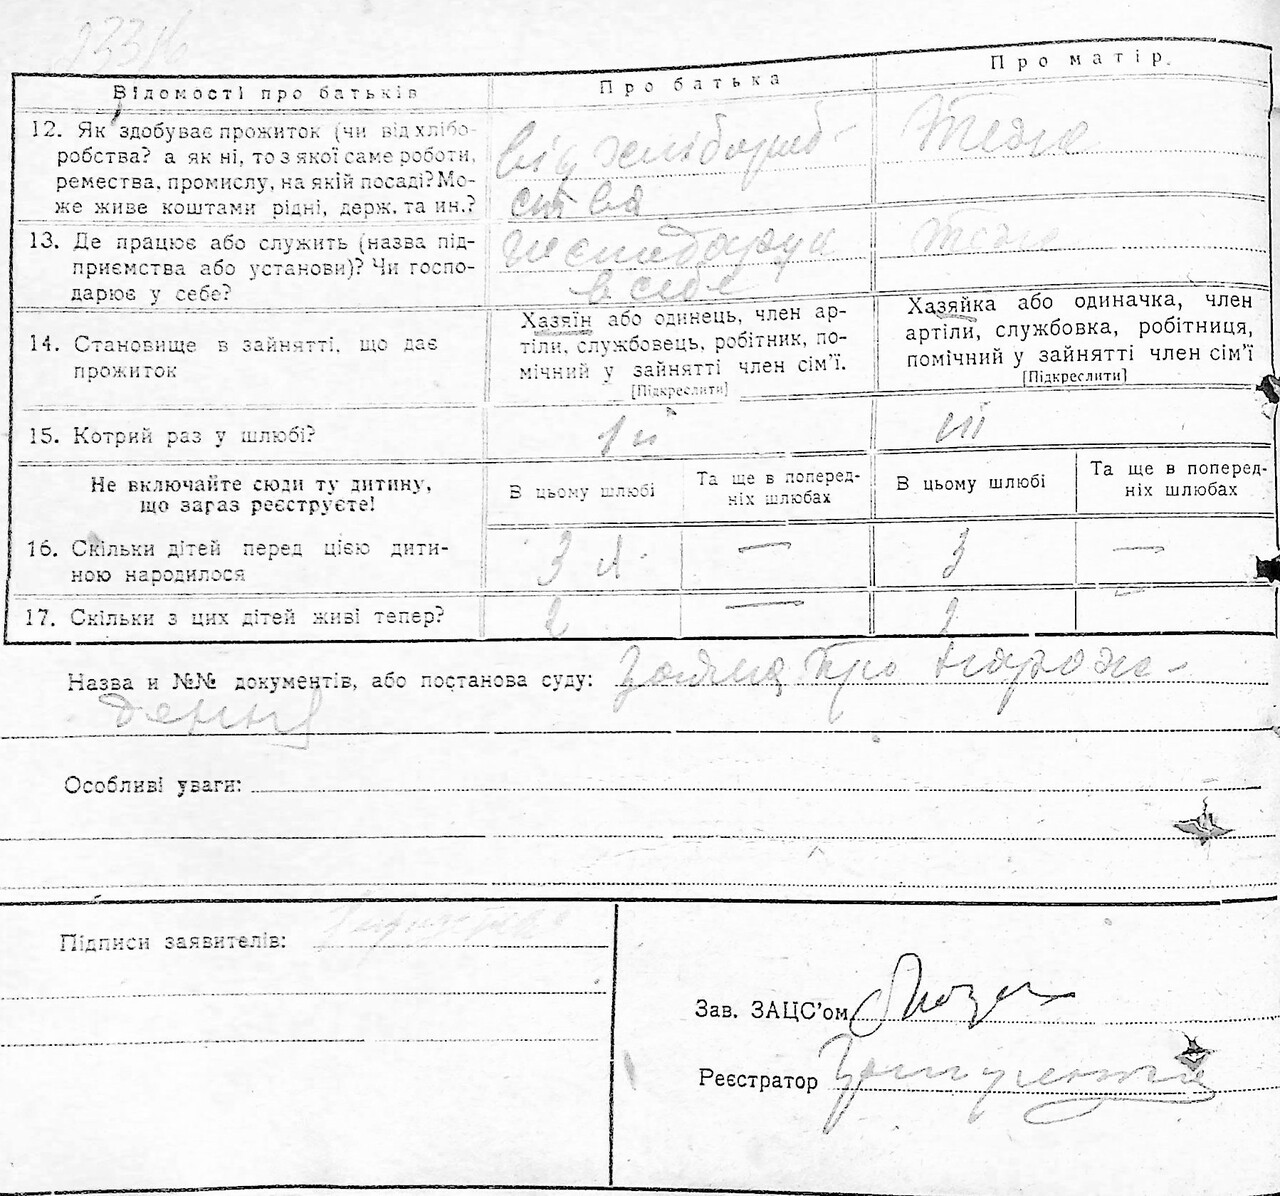 Відомості про батьків
Про батька
Про матір
12. Як здобуває прожиток (чи від хлібо-
робства? а як ні, то з якої саме роботи,
ремества, промислу, на якій посаді? Мо-
же живе коштами рідні, держ. та ин.?
від хлібороб-
ства
Теж
13. Де працює або служить (назва під-
приємства або установи)? Чи госпо-
дарює у себе?
господарує
в себе
теж
14. Становище в зайнятті, що дає
прожиток
Хазяїн або одинець, член ар-
тіли, службовець, робітник, по-
мічний у зайнятті член сім'ї.
[Підкреслити]
Хазяйка або одиначка, член
артіли, службовка, робітниця,
помічний у зайнятті член сім'ї
[Підкреслити]
15. Котрий раз у шлюбі?
Не включайте сюди ту дитину,
що зараз реєструєте!
В цьому шлюбі
Та ще в поперед-
ніх шлюбах
В цьому шлюбі
Та ще в поперед-
ніх шлюбах
16. Скільки дітей перед цією дити-
ною народилося
3
—
3
—
17. Скільки з цих дітей живі тепер?
2
—
2
—
Назва и №№ документів, або постанова суду: Заява про народж-
дення
Особливі уваги:
Підписи заявителів:
Зав. ЗАЦС'ом
Реєстратор